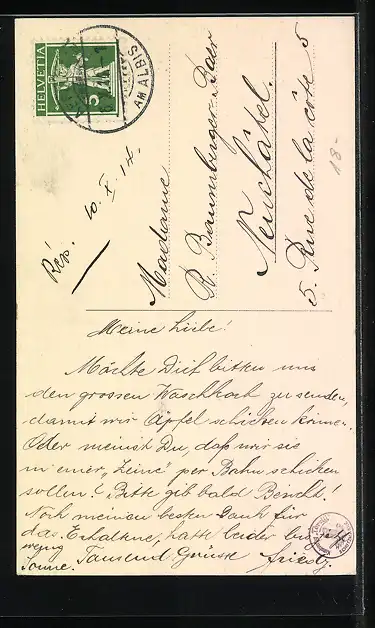 HELVETIA
5
AM ALBIS
Rép. 10. X. 14.
Madame
R. Baumberger-Baer
Neuchâtel.
5. Rue de la côte 5
18-
Meine Liebe!
Möchte Dich bitten uns
den grossen Waschkorb zu senden,
damit wir Äpfel schicken können.
Oder meinst Du, daß wir sie
in einer „Zeine" per Bahn schicken
sollen? Bitte gib bald Bericht!
Noch meinen besten Dank für
das Erhaltene, hatte leider
wenig Tausend Grüsse
Sonne.